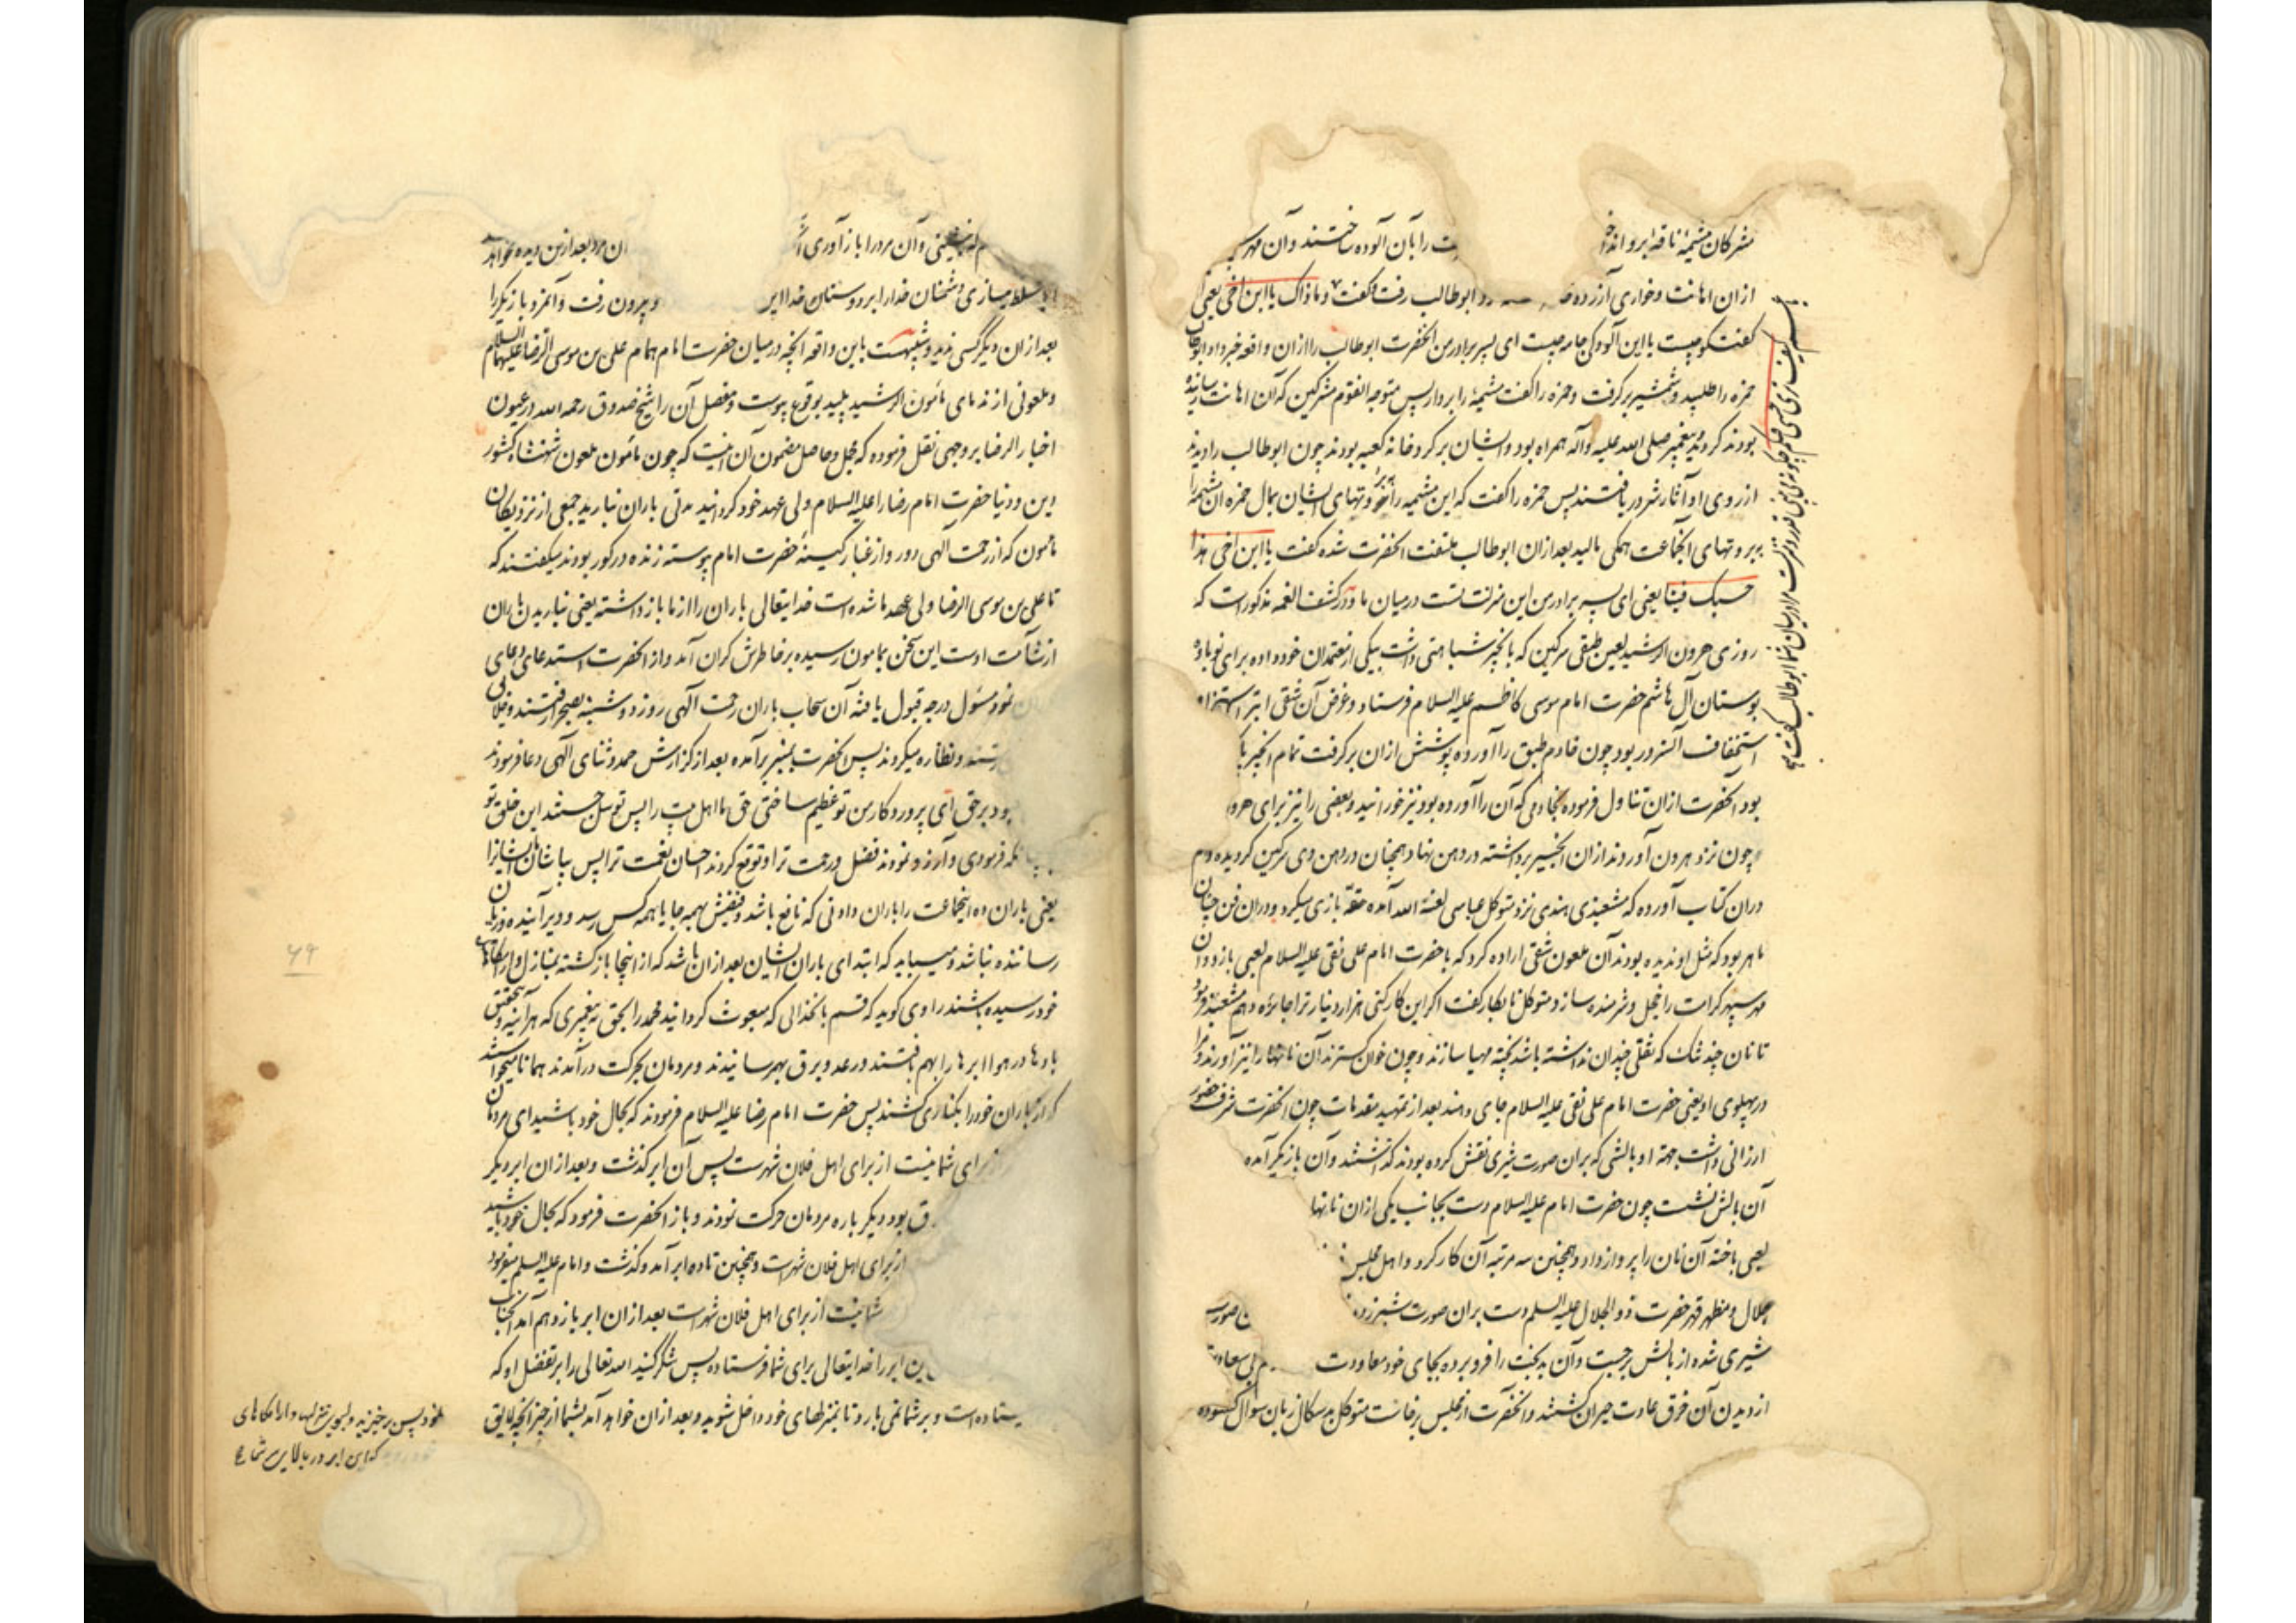 مشرکان مشیمهٔ ناقه ابرو انداخ ت را بآن آلوده ساختند و آن مهر سپهر
از ان اهانت و خواری آزرده ابوطالب رفت و گفت و ما ذاک یا ابن اخی یعنی
گفت کو چیست یا این آلودگی جامه چیست ای پسر برادر من آنحضرت ابوطالب را از ان واقعه خبر داد ابوطالب
حمزه را طلبید و شمشیر برگرفت و حمزه را گفت مشیمهٔ را بردار پس متوجه القوم مشرکین که آن اهانت رسانیده
بودند کردید و پیغمبر صلی الله علیه و آله همراه بود و ایشان بر گرد خانه کعبه بودند چون ابوطالب را دیدند
از روی او آثار شر دریافتند پس حمزه را گفت که این مشیمه را بر بروتهای ایشان بمال حمزه آن مشیمه را
بر بروتهای آنجماعت همگی مالید بعد از ان ابوطالب ملتفت آنحضرت شده گفت یا ابن اخی هذا
حسبک فینا یعنی ای پسر برادر من این منزلت تست در میان ما و در کشف الغمه مذکور است که
روزی هرون الرشید لعین طبقی سرگین که بانجیر شباهتی داشت بیکی از معتمدان خود داده برای نوباوه
بوستان آل هاشم حضرت امام موسی کاظم علیه السلام فرستاد و غرض آن شقی ابتر استهزاء و
استخفاف آنسرور بود چون خادم طبق را آورده پوشش از ان برگرفت تمام انجیر پا
بود آنحضرت از ان تناول فرموده بخادمی که آن را آورده بود نیز خورانید و بعضی را نیز برای هرو
چون نزد هرون آوردند از ان انجیر برداشته در دهن نهاد همچنان در دهن وی سرگین گردیده و هم
در ان کتاب آورده که مشعبذی هندی نزد متوکل عباسی لعنه الله آمده حقه بازی میکرد و در ان فن چنان
ماهر بود که مثل او ندیده بودند آن ملعون شقی اراده کرد که با حضرت امام علی نقی علیه السلام لعبی بازد و آن
مهر سپهر کرامت را خجل و شرمنده سازد متوکل نابکار گفت اگر این کار کنی هزار دینار ترا جائزه دهم مشعبذ فرمود
تا نان چند تنک که ثقلی چندان نداشته باشد پخته مهیا سازند و چون خوان گسترند آن نانها را نیز آورند و مرا
در پهلوی او یعنی حضرت امام علی نقی علیه السلام جای دهند بعد از تمهید مقدمات چون آنحضرت شرف حضور
ارزانی داشت بجهة او بالشی که بر ان صورت شیری نقش کرده بودند گذاشتند و آن بازیگر آمده
آن بالش نشست چون حضرت امام علیه السلام دست بجانب یکی از ان نانها
لعبی باخته آن نان را پرواز داد و همچنین سه مرتبه آن کار کرد و اهل مجلس
جلال و مظهر قهر حضرت ذو الجلال علیه السلم دست بر ان صورت شیر زد ن صورت
شیری شده از بالش برجست و آن بدبخت را فرو برده بجای خود معاودت
از دیدن آن خرق عادت حیران گشتند و آنحضرت از مجلس برخاست متوکل بدسگال زبان سوال گشوده
کیف تری حسبی فیکم چگونه می‌بینی قدر و منزلت مرا در میان شما ابوطالب گفت
نشینی و آن مرد را باز آوری ان مرد بعد ازین دیده نخواهد شد
مسلط میسازی دشمنان خدا را بر دوستان خدا این و بیرون رفت و آنمرد بازیگر را
بعد از ان دیگر کسی ندید و شبیه است باین واقعه آنچه در میان حضرت امام همام علی بن موسی الرضا علیهما السلام
و ملعونی از ندمای مأمون الرشید پلید بوقوع پیوست و مفصل آن را شیخ صدوق رحمه الله در عیون
اخبار الرضا بر وجهی نقل فرموده که مجمل و حاصل مضمون آن اینست که چون مأمون ملعون شهنشاه کشور
دین و دنیا حضرت امام رضا را علیه السلام ولی عهد خود گردانید مدتی باران نبارید جمعی از نزدیکان
مأمون که از رحمت آلهی دور و از غبار کینهٔ حضرت امام پیوسته زنده در گور بودند میگفتند که
تا علی بن موسی الرضا ولی عهد ما شده است خدایتعالی باران را از ما باز داشته یعنی نباریدن باران
از شآمت اوست این سخن بمامون رسیده بر خاطرش گران آمد و از آنحضرت استدعای دعای
نمود مسئول درجه قبول یافته آن سحاب باران رحمت آلهی روز دوشنبه بصحرا رفتند و خلایق
و نظاره میکردند پس آنحضرت بمنبر برآمده بعد از گزارش حمد و ثنای آلهی دعا فرمودند
بود بر حق ای پروردگار من تو عظیم ساختی حق ما اهل بیت را پس توسل جستند این خلق تو
فرمودی و آرزو نمودند فضل و رحمت ترا و توقع کردند احسان نعمت ترا پس بباشان ایشانرا
یعنی باران ده اینجماعت را باران دادنی که نافع باشد و نفعش بهمه جا یا همه کس رسد و دیر آینده و زیان
رساننده نباشد و میباید که ابتدای باران ایشان بعد از ان باشد که از اینجا بازگشته بمنازل و آرامگاههای
خود رسیده باشند راوی گوید که قسم بانخدائی که مبعوث گردانید محمد را بحق به پیغمبری که هر آینه بتحقیق
بادها در هوا ابرها را بهم بافتند و رعد و برق بهم رسانیدند و مردمان بحرکت درآمدند همانا میخواستند
که از باران خود را بکناری کشند پس حضرت امام رضا علیه السلام فرمودند که بحال خود باشید ای مردمان
از برای شما نیست از برای اهل فلان شهر است پس آن ابر گذشت و بعد از ان ابر دیگر
ق بود دیگر باره مردمان حرکت نمودند و باز آنحضرت فرمود که بحال خود باشید
از برای اهل فلان شهر است و همچنین تا ده ابر آمد و گذشت و امام علیه السلم میفرمود
شما نیست از برای اهل فلان شهر است بعد از ان ابر یازدهم آمد آنجناب
این ابر را خدایتعالی برای شما فرستاده پس شکر کنید الله تعالی را بر تفضل او که
ستاده است و بر شما نمی بارد تا بمنزلهای خود داخل شوید و بعد از ان خواهد آمد بشما از خیر آنچه لایق
خود پس برخیزید و بسوی منزلها و آرامگاهای
که این ابر در بالای سر شما